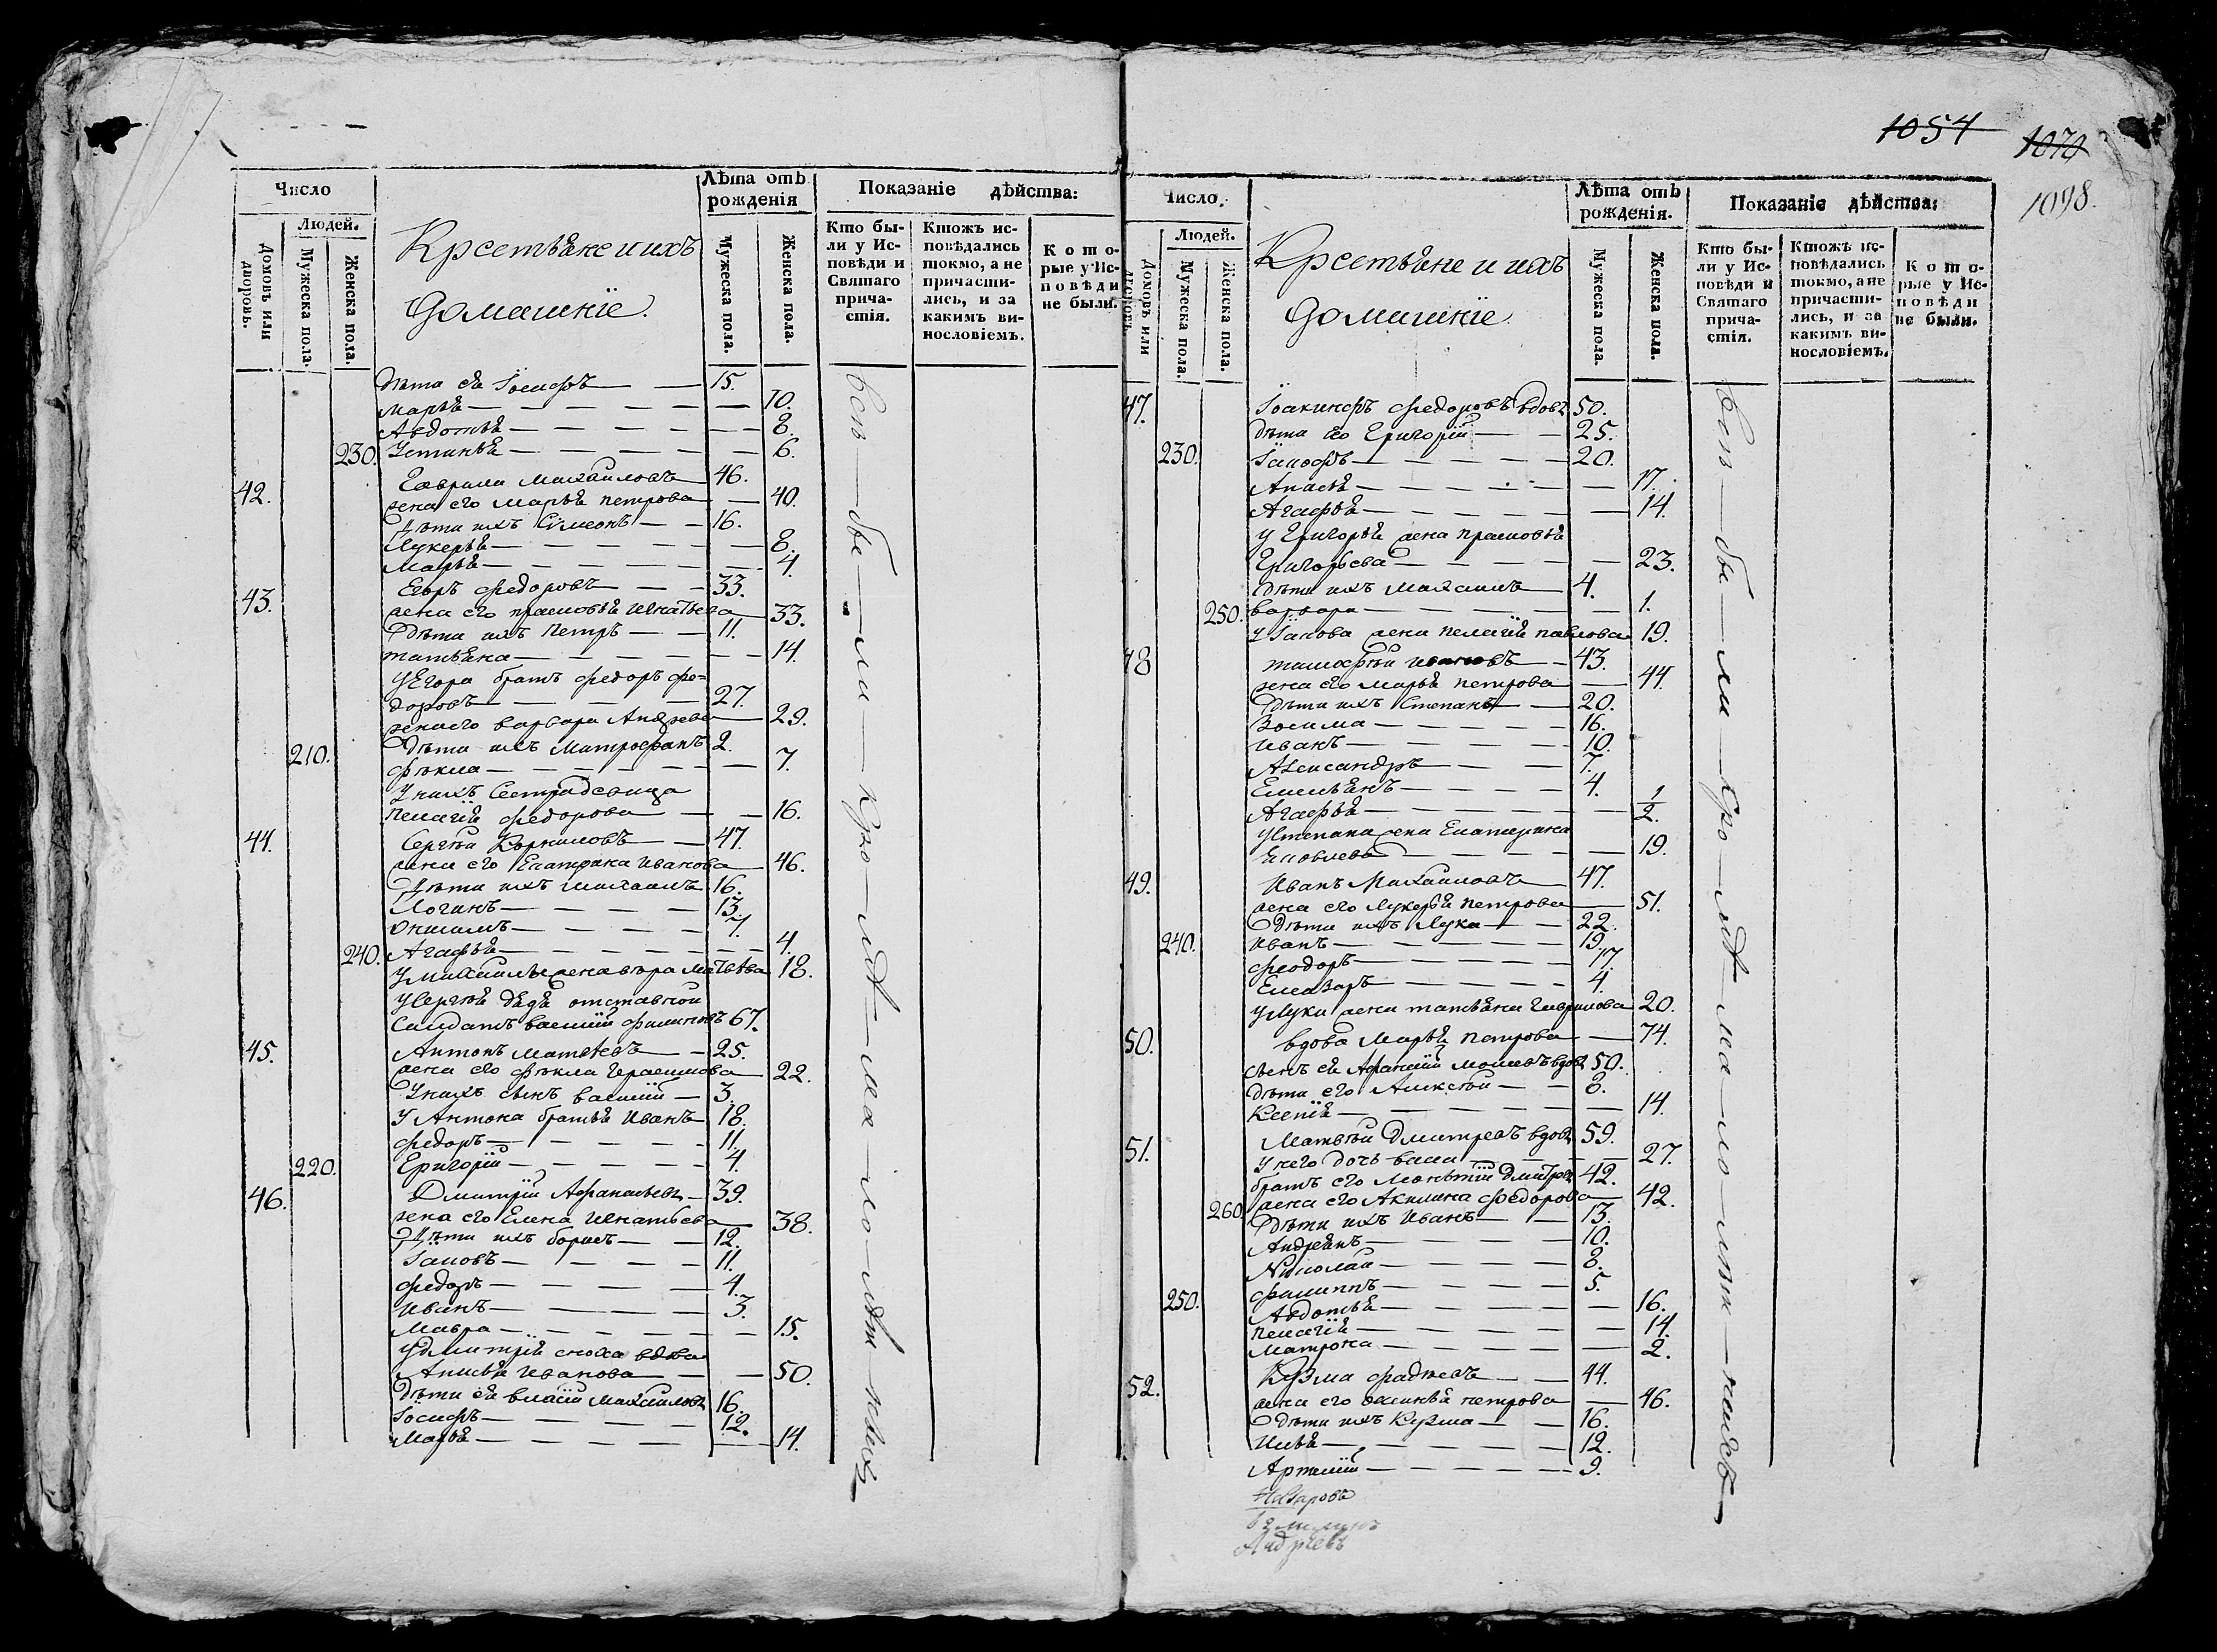 1054
1070
1098.
Число
Людей.
Домовъ или дворовъ.
Мужеска пола.
Женска пола.
Крестьяне и ихъ
домашніе.
Лѣта отъ рожденія
Мужеска пола.
Женска пола.
Показаніе дѣйства:
Кто были у Исповѣди и Святаго причастія.
Ктожъ исповѣдались токмо, а не причастились, и за какимъ винословіемъ.
Которые у Исповѣди не были.
Дѣти ея Іосифъ 15.
Марья 10.
Авдотья 8.
230. Устинья 6.
42. Гаврила Михайловъ 46.
жена его Марья Петрова 40.
Дѣти ихъ Сімеонъ 16.
Лукерья 8.
Марья 4.
43. Егоръ Федоровъ 33.
жена его Прасковья Игнатьева 33.
Дѣти ихъ Петръ 11.
Татьяна 14.
У Егора братъ Федоръ Фе=
доровъ 27.
жена его Варвара Андрева 29.
210. Дѣти ихъ Митрофанъ 2.
Фѣкла 7.
У нихъ Сестра девица
Пелагія Федорова 16.
44. Сергѣй Корниловъ 47.
жена его Екатерина Иванова 46.
Дѣти ихъ Михаилъ 16.
Логинъ 13.
Онисимъ 7.
240. Агафья 4.
У Михаилы жена Вѣра Матвѣва 18.
У Сергѣя дядя отставной
Салдатъ Василій Филиповъ 67.
45. Антонъ Матвѣевъ 25.
жена его Фѣкла Герасимова 22.
У нихъ сынъ Василій 3.
У Антона братья Иванъ 18.
Федоръ 11.
220. Григорій 4.
46. Дмитрій Афанасьевъ 39.
жена его Елена Игнатьева 38.
Дѣти ихъ Борисъ 12.
Іаковъ 11.
Федоръ 4.
Иванъ 3.
Мавра 15.
У Дмитрія сноха вдова
Анисья Иванова 50.
Дѣти ея Власій Михайловъ 16.
Іосифъ 12.
Марья 14.
всѣ бы ли
Число.
Людей.
Домовъ или дворовъ.
Мужеска пола.
Женска пола.
Крестьяне и ихъ
домашніе
Лѣта отъ рожденія.
Мужеска пола.
Женска пола.
Показаніе дѣйства:
Кто были у Исповѣди и Святаго причастія.
Ктожъ исповѣдались токмо, а не причастились, и за какимъ винословіемъ.
Которые у Исповѣди не были.
47. Іоакинфъ Федоровъ вдовъ 50.
Дѣти его Григорій 25.
230. Іаковъ 20.
Анисья 17.
Агафья 14.
У Григорья жена Прасковья
Григорьева 23.
Дѣти ихъ Максимъ 4.
250. Варвара 1.
У Іакова жена Пелагія Павлова 19.
48 Тимофѣй Ивановъ 43.
жена его Марья Петрова 44.
Дѣти ихъ Степанъ 20.
Зосима 16.
Иванъ 10.
Александръ 7.
Емельянъ 4.
Агафья 1/2.
У Степана жена Екатерина
Яковлева 19.
49. Иванъ Михайловъ 47.
жена его Лукерья Петрова 51.
Дѣти ихъ Лука 22.
240. Иванъ 19.
Феодоръ 17.
Елеазаръ 4.
У Луки жена Татьяна Гаврилова 20.
50. вдова Марья Петрова 74.
сынъ ея Афанасій вдовъ 50.
Дѣти его Алексѣй 8.
Ксенія 14.
51. Матвѣй Дмитревъ вдовъ 59.
У него дочь 27.
братъ его Дмитревъ 42.
жена его Акилина Федорова 42.
260. Дѣти ихъ Иванъ 13.
Андреянъ 10.
Николай 8.
Филиппъ 5.
250. Авдотья 16.
Пелагія 14.
Матрона 2.
52. Кузма Фадѣевъ 44.
жена его Аксинья Петрова 46.
Дѣти ихъ Кузма 16.
Илья 12.
Артемій 9.
всѣ бы ли
Назаровъ
Андреевъ